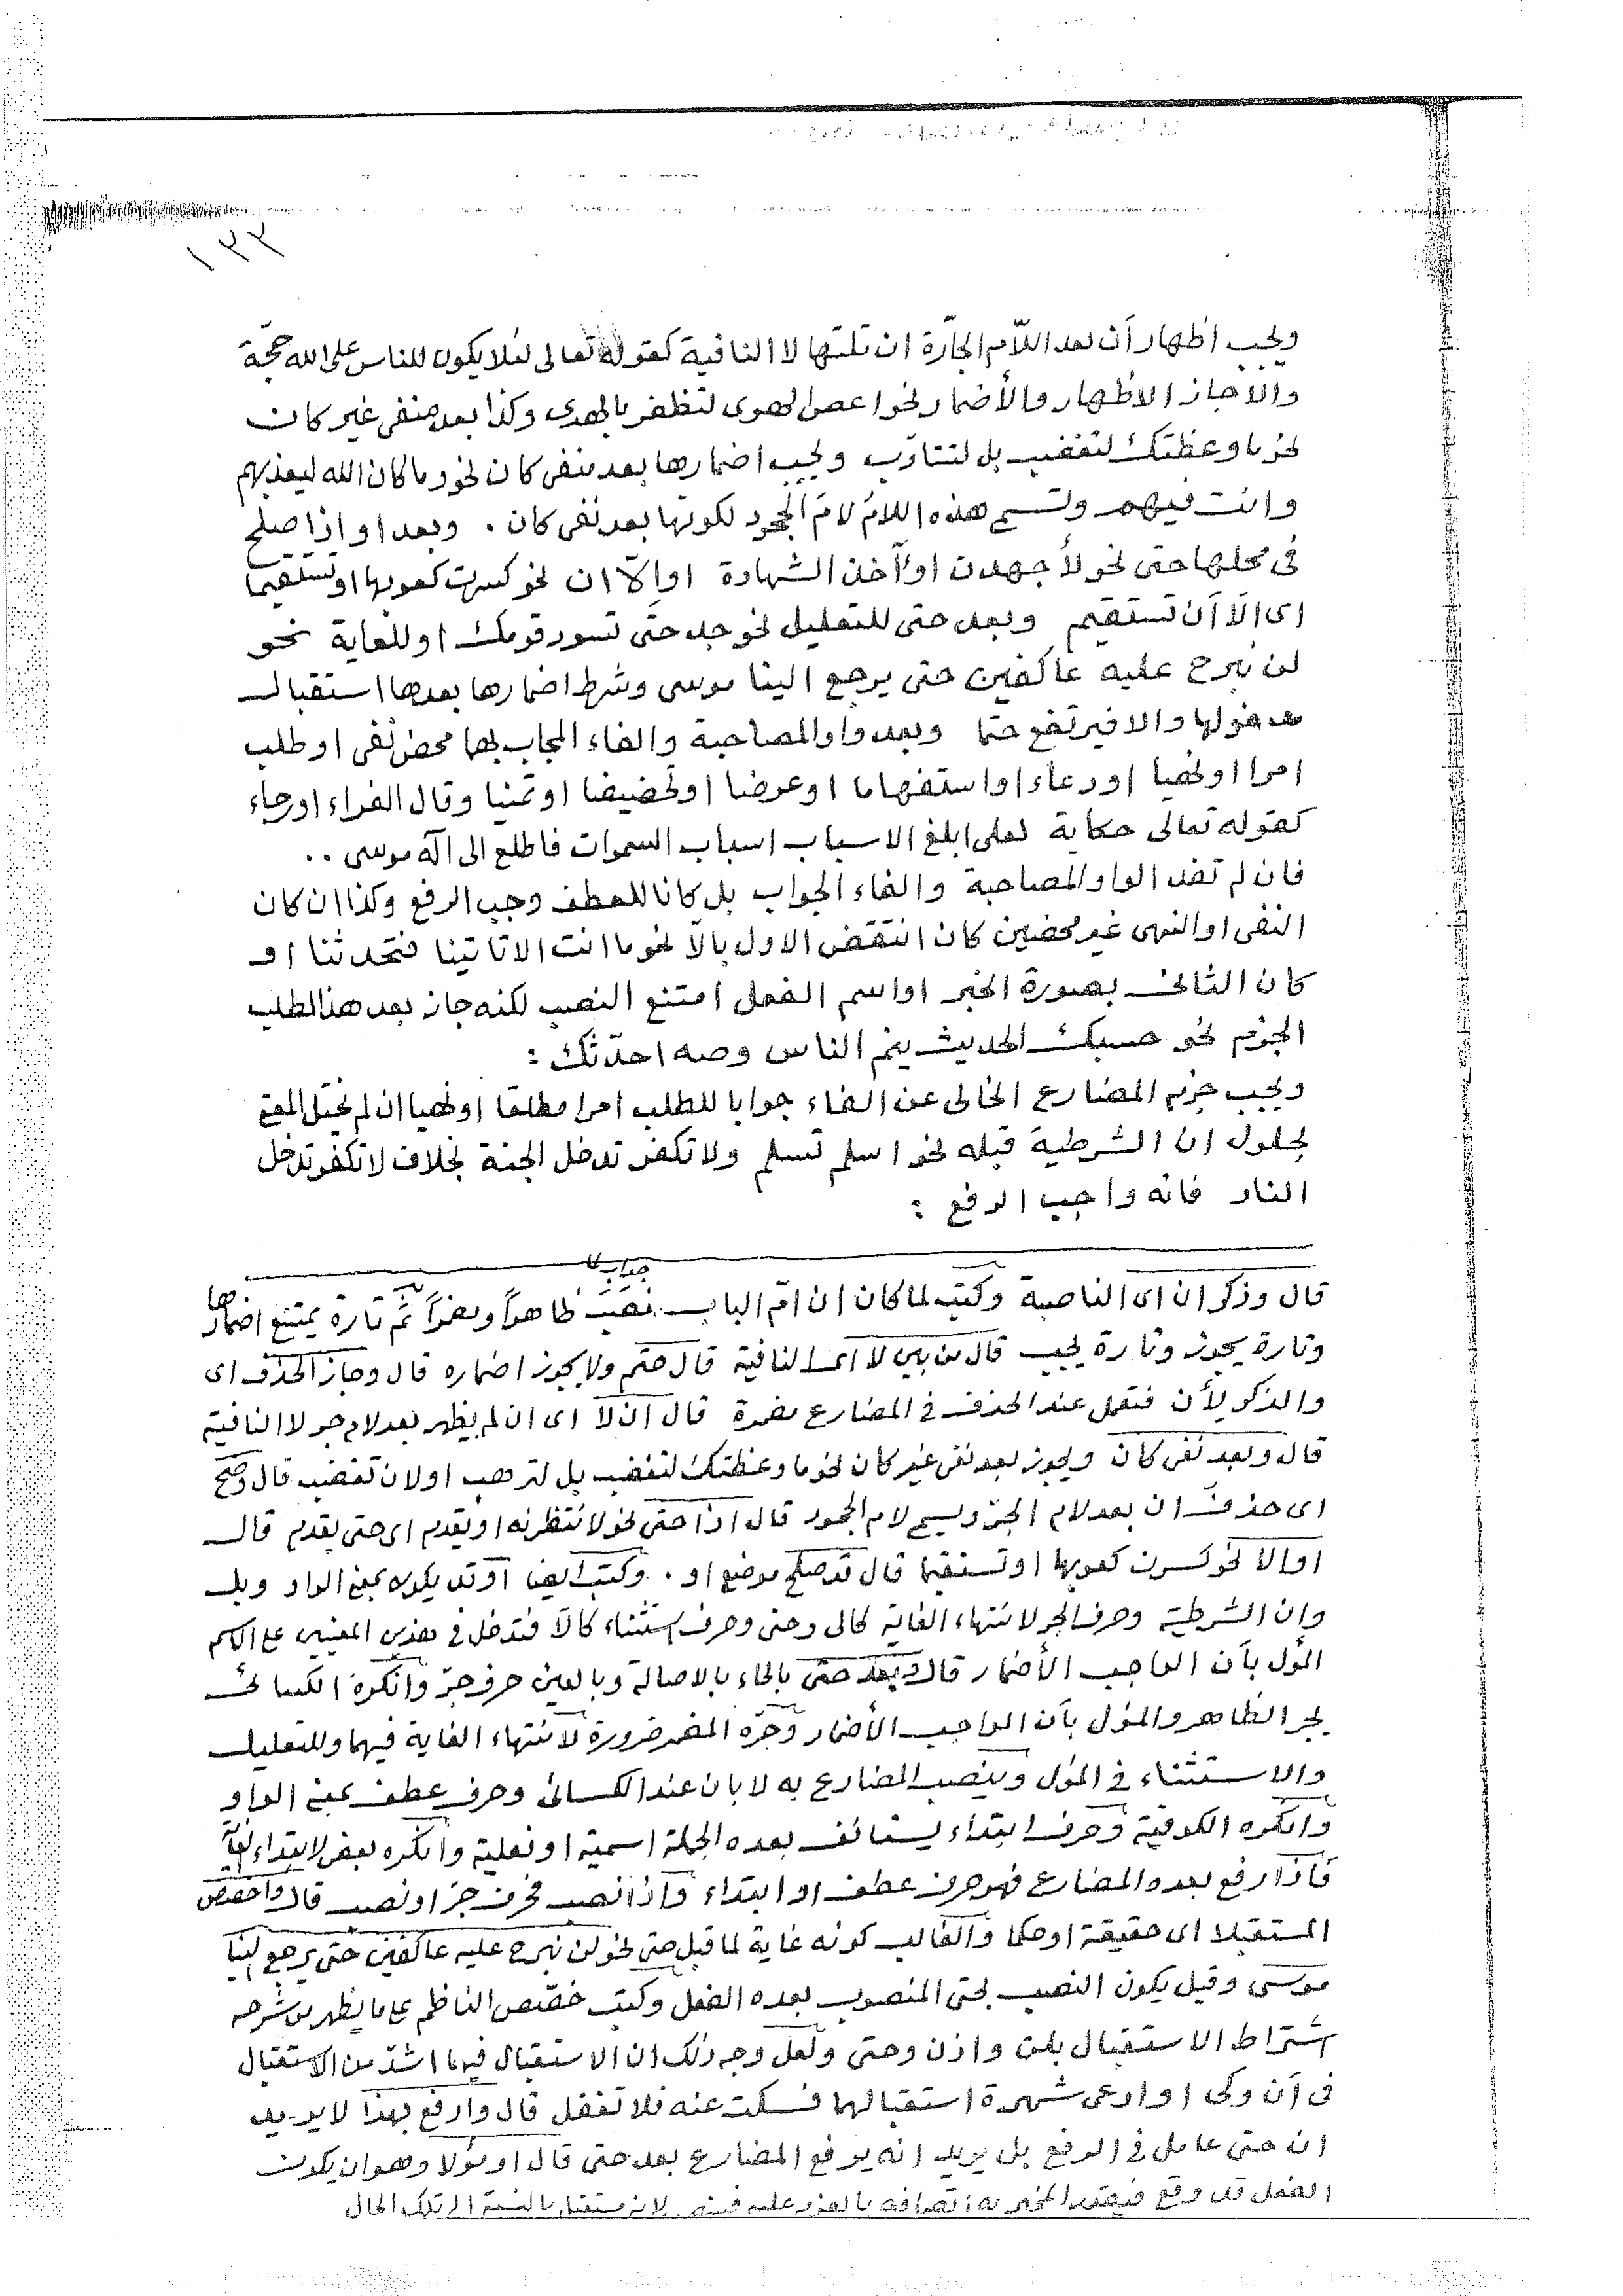 ١٣٣
ويجب اظهار أن بعد اللّام الجارّة ان تلتها لا النافية كقوله تعالى لئلا يكون للناس على الله حجّة
والا جاز الاظهار والأضمار نحو اعص الهوى لتظفر بالهدى وكذا بعد منفى غير كان
نحو ما وعظتك لتغضب بل لتتأدّب ويجب اضمارها بعد منفى كان نحو وما كان الله ليعذبهم
وانت فيهم وتسمى هذه اللامُ لامَ الجحود لكونها بعد نفى كان . وبعد او اذا صلح
فى محلها حتى نحو لأجهدن او آخذ الشهادة او إلّا ان نحو كسرت كعوبها او تستقيما
اى الّا أن تستقيم وبعد حتى للتعليل نحو جد حتّى تسود قومك او للغاية نحو
لن نبرح عليه عاكفين حتى يرجع الينا موسى وشرط اضمارها بعدها استقبال
مدخولها والا فيرتفع حتما وبعد واو المصاحبة والفاء المجاب بهما محض نفى او طلب
امرا او نهيا او دعاء او استفهاما او عرضا او تحضيضا او تمنيا وقال الفراء او رجاء
كقوله تعالى حكاية لعلى ابلغ الاسباب اسباب السموات فاطلع الى اله موسى ..
فان لم تفد الواو المصاحبة والفاء الجواب بل كانا للعطف وجب الرفع وكذا ان كان
النفى او النهى غير محضين كان انتقض الاول بالّا نحو ما انت الا تاتينا فتحدثنا او
كان الثانى بصورة الخبر او اسم الفعل امتنع النصب لكنه جاز بعد هذا الطلب
الجزم نحو حسبك الحديث ينم الناس وصه احدّثك :
ويجب جزم المضارع الخالى عن الفاء جوابا للطلب امرا مطلقا او نهيا ان لم يختل المعنى
بحلول ان الشرطية قبله نحو اسلم تسلم ولا تكفر تدخل الجنة بخلاف لا تكفر تدخل
النار فانه واجب الرفع :
قال وذكر ان اى الناصبة وكتب لما كان ان امّ الباب نصبت ظاهراً ومضمراً ثم تارة يمتنع اضمارها
جواب لما
وتارة يجوز وتارة يجب قال من بين لا اى النافية قال حتم ولا يجوز اضماره قال وجاز الحذف اى
والذكر لأن فتعمل عند الحذف فى المضارع مضمرة قال ان لا اى ان لم يظهر بعد لام جر لا النافية
قال وبعد نفى كان ويجوز بعد نفى غير كان نحو ما وعظتك لتغضب بل لترهب او لان تغضب قال وصح
اى حذف ان بعد لام الجرّ ويسمى لام الجحود قال اذا حتى نحو لانتظرنه او يقدم اى حتى يقدم قال
او الا نحو كسرت كعوبها او تستقيما قال قد صلح موضع او . وكتب ايضا او قد يكون بمعنى الواو وبل
وان الشرطية وحرف الجر لانتهاء الغاية كالى وحتى وحرف استثناء كالّا فتدخل فى هذين المعنيين على الاسم
المؤل بأن الواجب الأضمار قال وبعد حتى بالحاء بالاصالة وبالعين حرف جرّ وانكره الكسائى
يجر الظاهر والمؤل بأن الواجب الأضمار وجرّه المضمر ضرورة لانتهاء الغاية فيهما وللتعليل
والاستثناء فى المؤل وينصب المضارع به لا بان عند الكسائى وحرف عطف بمعنى الواو
وانكره الكوفية وحرف ابتداء يستانف بعده الجملة اسمية او فعلية وانكره بعض
فاذا رفع بعده المضارع فهو حرف عطف او ابتداء واذا نصب فحرف جرّ او نصب قال واخصص
المستقبلا اى حقيقة او حكما والغالب كونه غاية لما قبل حتى نحو لن نبرح عليه عاكفين حتى يرجع الينا
موسى وقيل يكون النصب بحتى المنصوب بعده الفعل وكتب خصّص الناظم على ما يظهر من شرحه
اشتراط الاستقبال بلن واذن وحتى ولعل وجه ذلك ان الاستقبال فيها اشدّ من الاستقبال
فى أن وكى او ادعى شهرة استقبالهما فسكت عنه فلا تغفل قال وارفع بهذا لا يريد
ان حتى عامل فى الرفع بل يريد انه يرفع المضارع بعد حتى قال او مؤلا وهو ان يكون
الفعل قد وقع فيقدر المخبر به اتصافه بالعزم عليه لانه مستقبل بالنسبة الى تلك الحال